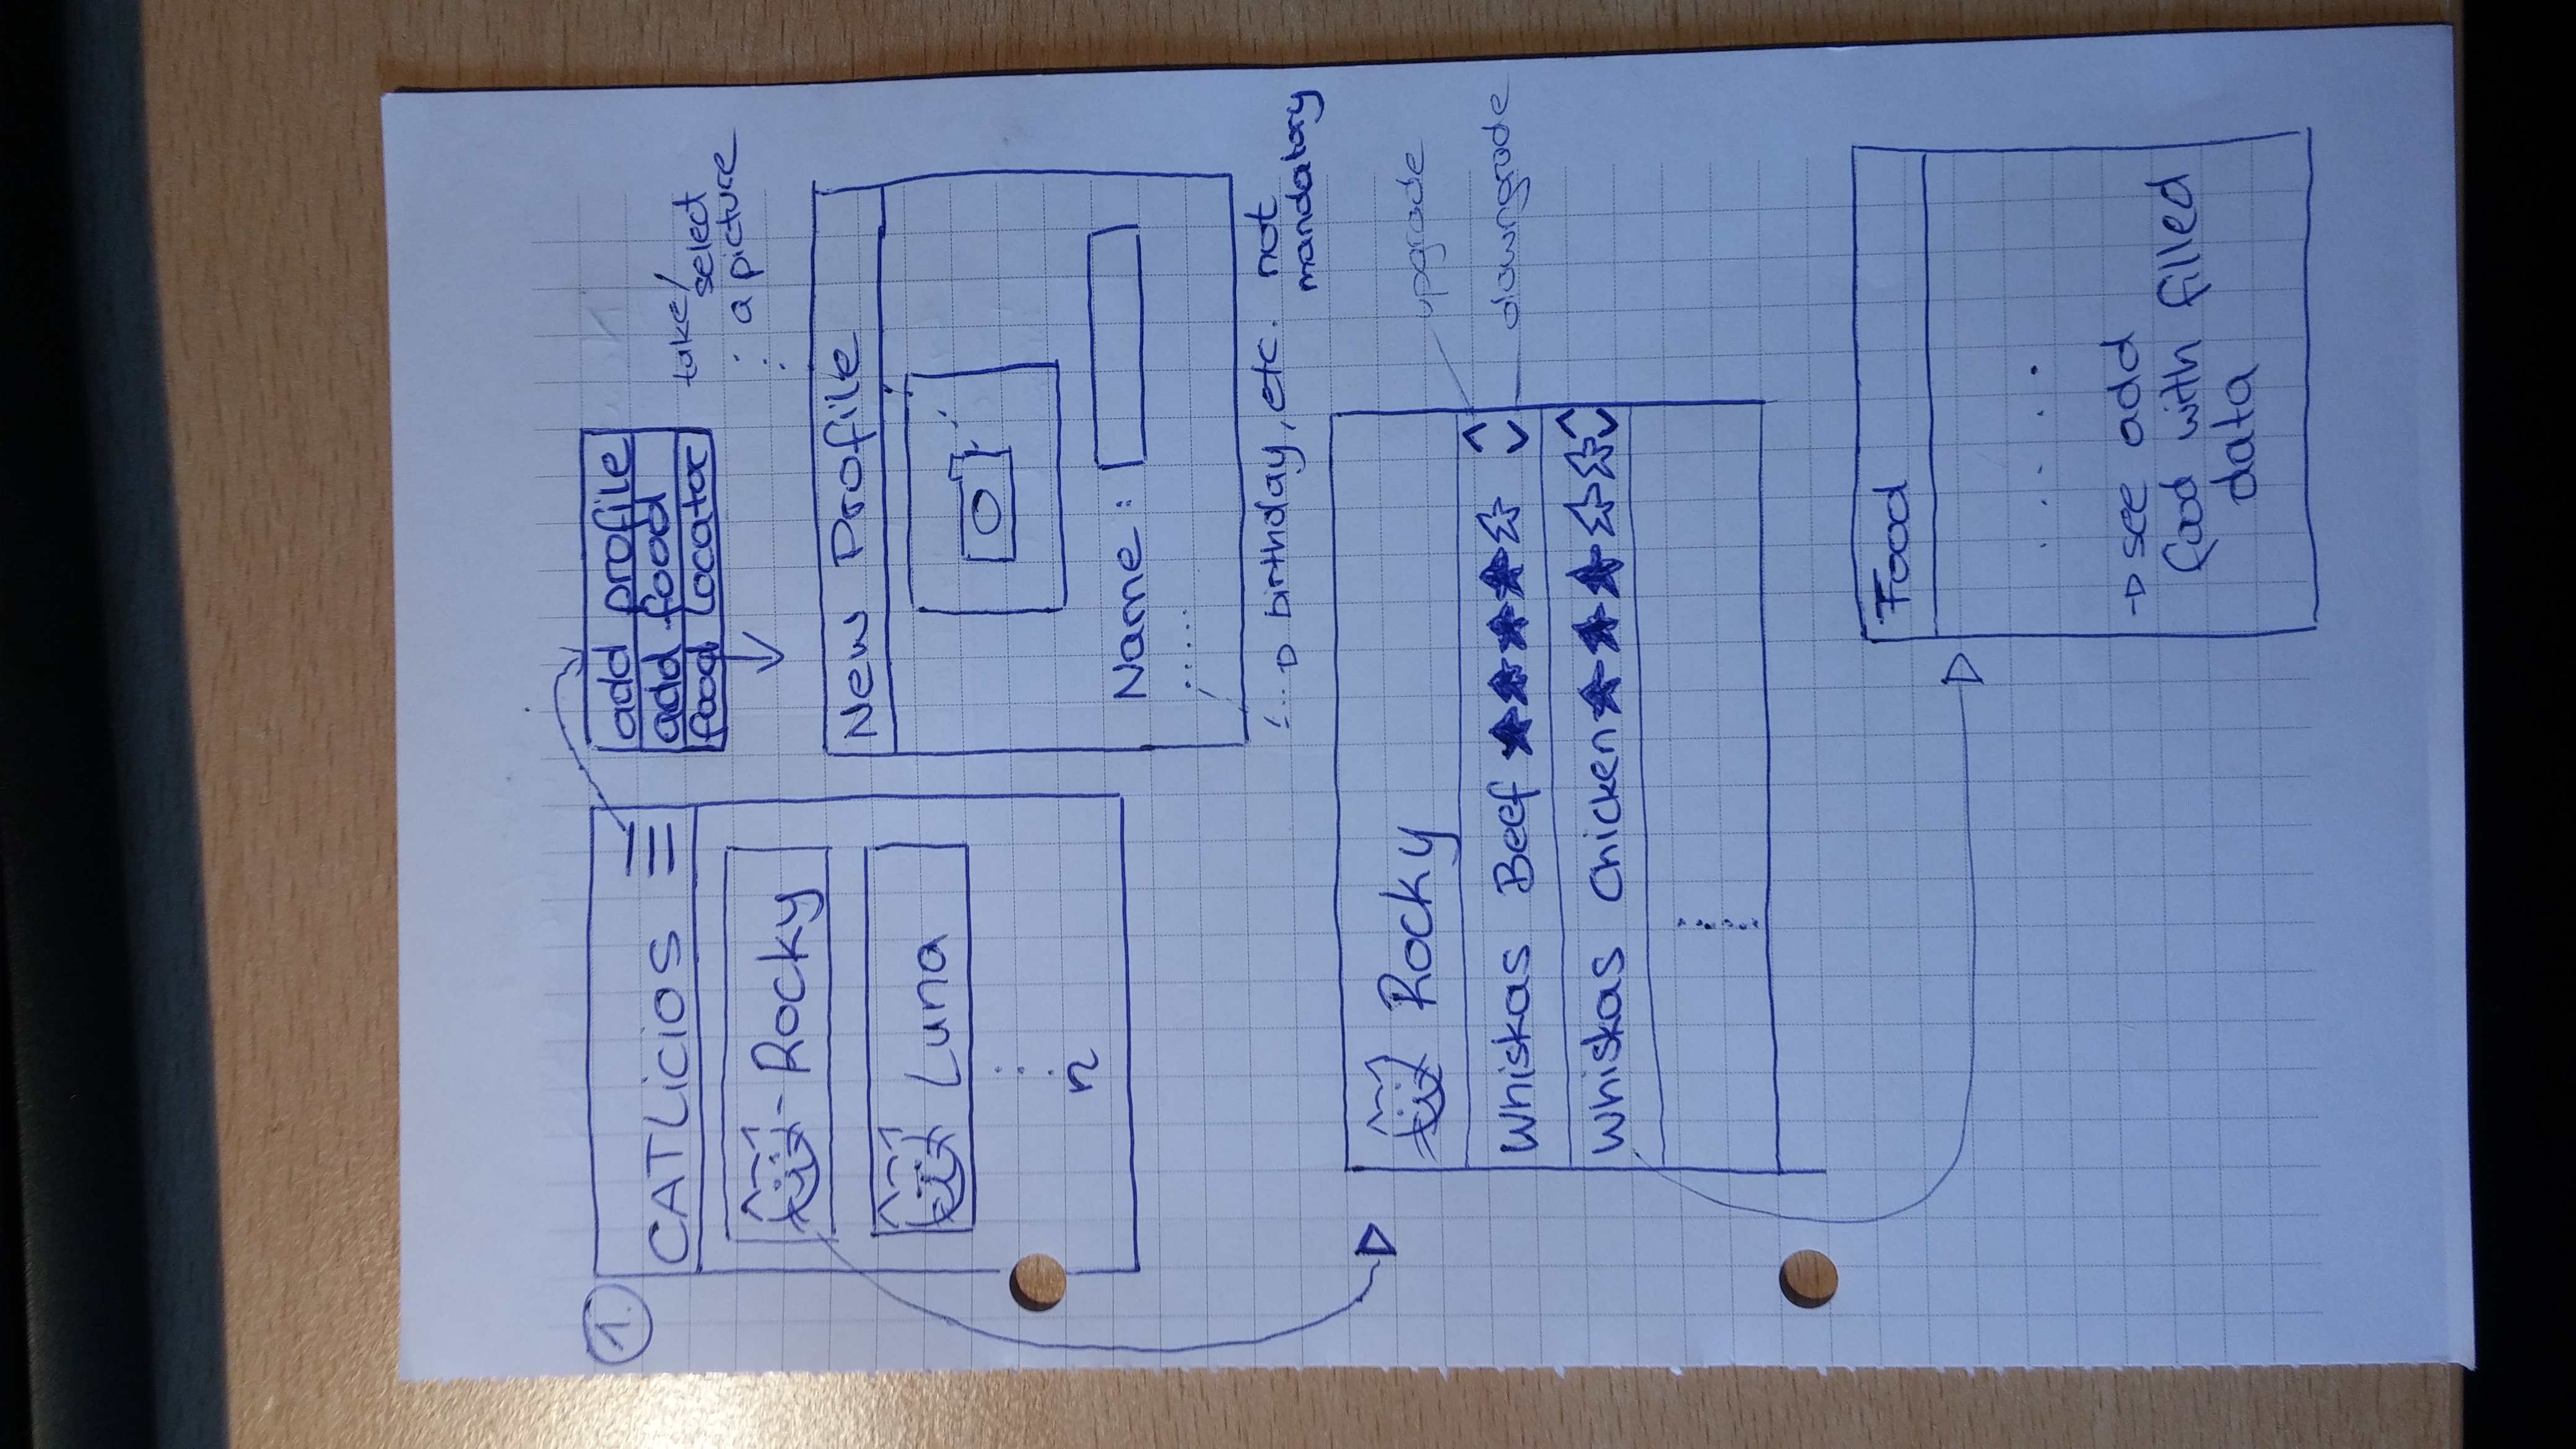 1.
CATLicioS
Rocky
Luna
n
add profile
add food
food locator
take/
select
a picture
New Profile
Name:
.....
birthday, etc. not
mandatory
Rocky
Whiskas Beef
upgrade
downgrade
Whiskas Chicken
Food
.....
see add
food with filled
data